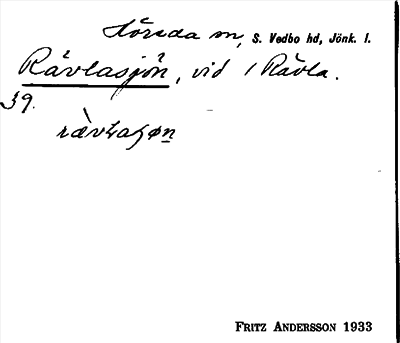 Höreda sn, S. Vedbo hd, Jönk. l.
Rävlasjön, vid 1 Rävla.
39.
rævlaʃøn
FRITZ ANDERSSON 1933